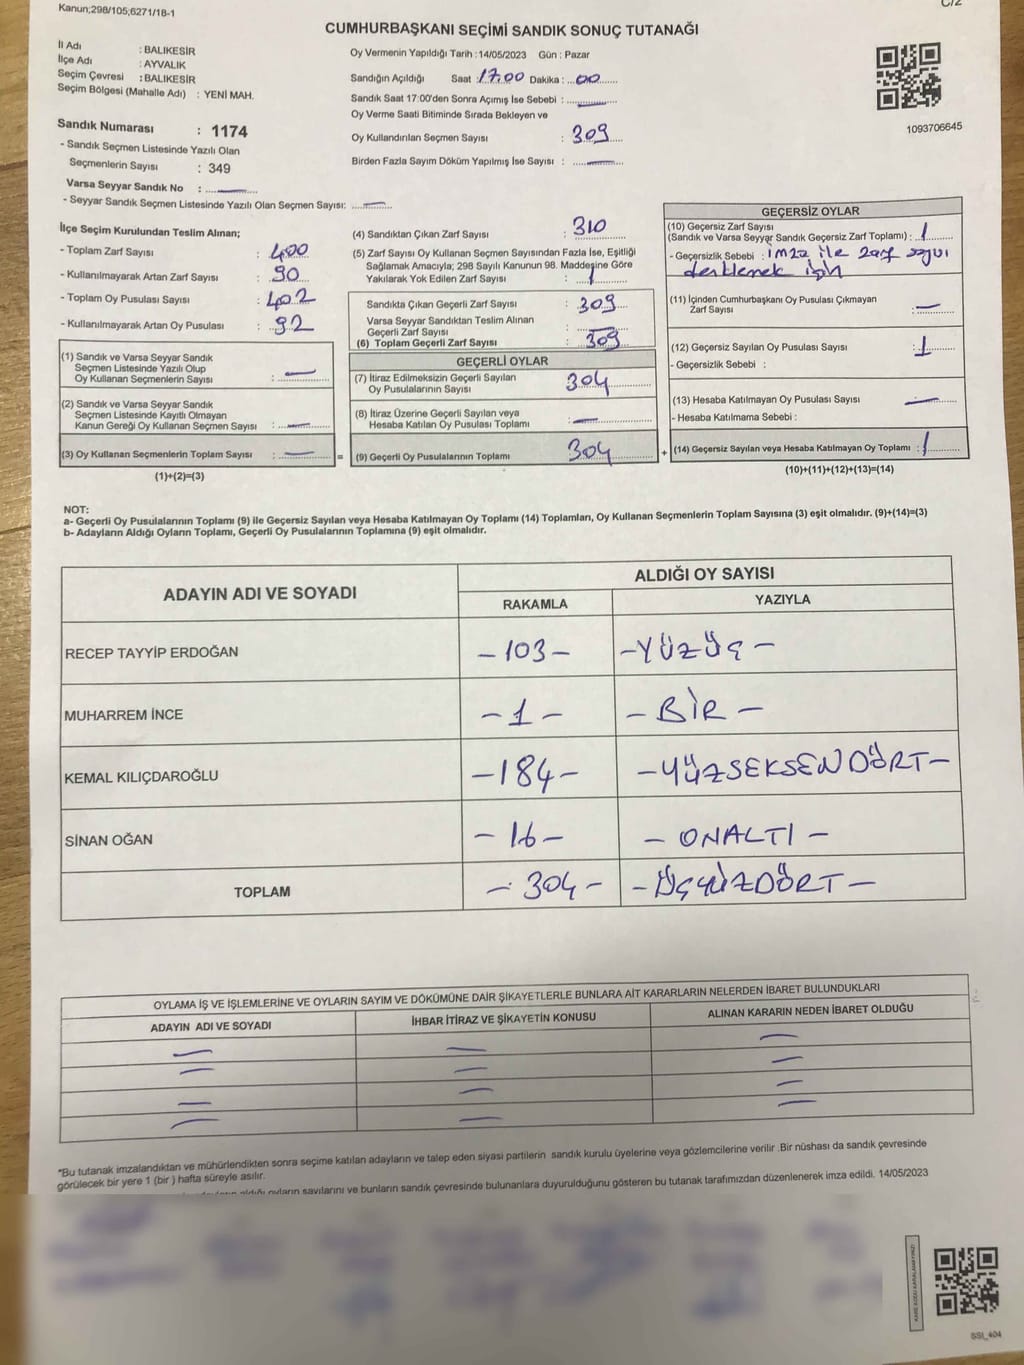 Kanun;298/105;6271/18-1
C/2
CUMHURBAŞKANI SEÇİMİ SANDIK SONUÇ TUTANAĞI
İl Adı : BALIKESİR
İlçe Adı : AYVALIK
Seçim Çevresi : BALIKESİR
Seçim Bölgesi (Mahalle Adı) : YENİ MAH.
Sandık Numarası : 1174
- Sandık Seçmen Listesinde Yazılı Olan
Seçmenlerin Sayısı : 349
Varsa Seyyar Sandık No : —
- Seyyar Sandık Seçmen Listesinde Yazılı Olan Seçmen Sayısı: —
Oy Vermenin Yapıldığı Tarih : 14/05/2023 Gün : Pazar
Sandığın Açıldığı Saat : 17.00 Dakika : 00
Sandık Saat 17:00'den Sonra Açımış İse Sebebi : —
Oy Verme Saati Bitiminde Sırada Bekleyen ve
Oy Kullandırılan Seçmen Sayısı : 309
Birden Fazla Sayım Döküm Yapılmış İse Sayısı : —
1093706645
İlçe Seçim Kurulundan Teslim Alınan;
- Toplam Zarf Sayısı : 400
- Kullanılmayarak Artan Zarf Sayısı : 90
- Toplam Oy Pusulası Sayısı : 402
- Kullanılmayarak Artan Oy Pusulası : 92
(1) Sandık ve Varsa Seyyar Sandık
Seçmen Listesinde Yazılı Olup
Oy Kullanan Seçmenlerin Sayısı : —
(2) Sandık ve Varsa Seyyar Sandık
Seçmen Listesinde Kayıtlı Olmayan
Kanun Gereği Oy Kullanan Seçmen Sayısı : —
(3) Oy Kullanan Seçmenlerin Toplam Sayısı : — =
(1)+(2)=(3)
(4) Sandıktan Çıkan Zarf Sayısı : 310
(5) Zarf Sayısı Oy Kullanan Seçmen Sayısından Fazla İse, Eşitliği
Sağlamak Amacıyla; 298 Sayılı Kanunun 98. Maddesine Göre
Yakılarak Yok Edilen Zarf Sayısı : 1
Sandıkta Çıkan Geçerli Zarf Sayısı : 309
Varsa Seyyar Sandıktan Teslim Alınan
Geçerli Zarf Sayısı : —
(6) Toplam Geçerli Zarf Sayısı : 309
GEÇERLİ OYLAR
(7) İtiraz Edilmeksizin Geçerli Sayılan
Oy Pusulalarının Sayısı : 304
(8) İtiraz Üzerine Geçerli Sayılan veya
Hesaba Katılan Oy Pusulası Toplamı : —
(9) Geçerli Oy Pusulalarının Toplamı : 304 +
GEÇERSİZ OYLAR
(10) Geçersiz Zarf Sayısı
(Sandık ve Varsa Seyyar Sandık Geçersiz Zarf Toplamı) : 1
- Geçersizlik Sebebi : imza ile zarf sayısı
denklemek için
(11) İçinden Cumhurbaşkanı Oy Pusulası Çıkmayan
Zarf Sayısı : —
(12) Geçersiz Sayılan Oy Pusulası Sayısı : 1
- Geçersizlik Sebebi :
(13) Hesaba Katılmayan Oy Pusulası Sayısı : —
- Hesaba Katılmama Sebebi :
(14) Geçersiz Sayılan veya Hesaba Katılmayan Oy Toplamı : 1
(10)+(11)+(12)+(13)=(14)
NOT:
a- Geçerli Oy Pusulalarının Toplamı (9) ile Geçersiz Sayılan veya Hesaba Katılmayan Oy Toplamı (14) Toplamları, Oy Kullanan Seçmenlerin Toplam Sayısına (3) eşit olmalıdır. (9)+(14)=(3)
b- Adayların Aldığı Oyların Toplamı, Geçerli Oy Pusulalarının Toplamına (9) eşit olmalıdır.
ADAYIN ADI VE SOYADI
ALDIĞI OY SAYISI
RAKAMLA YAZIYLA
RECEP TAYYİP ERDOĞAN -103- -YÜZÜÇ-
MUHARREM İNCE -1- -BİR-
KEMAL KILIÇDAROĞLU -184- -YÜZSEKSENDÖRT-
SİNAN OĞAN -16- -ONALTI-
TOPLAM -304- -ÜÇYÜZDÖRT-
OYLAMA İŞ VE İŞLEMLERİNE VE OYLARIN SAYIM VE DÖKÜMÜNE DAİR ŞİKAYETLERLE BUNLARA AİT KARARLARIN NELERDEN İBARET BULUNDUKLARI
ADAYIN ADI VE SOYADI İHBAR İTİRAZ VE ŞİKAYETİN KONUSU ALINAN KARARIN NEDEN İBARET OLDUĞU
— — —
— — —
— — —
— — —
"Bu tutanak imzalandıktan ve mühürlendikten sonra seçime katılan adayların ve talep eden siyasi partilerin sandık kurulu üyelerine veya gözlemcilerine verilir .Bir nüshası da sandık çevresinde
görülecek bir yere 1 (bir ) hafta süreyle asılır.
aldığı oyların sayılarını ve bunların sandık çevresinde bulunanlara duyurulduğunu gösteren bu tutanak tarafımızdan düzenlenerek imza edildi. 14/05/2023
KARE KODU KARALAMAYINIZ!
SSI_404